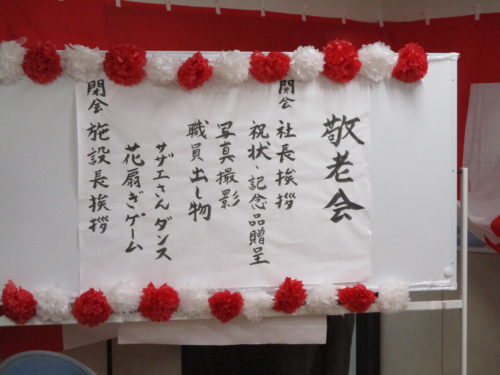 敬老会
開会 社長挨拶
祝状・記念品贈呈
写真撮影
職員出し物
サザエさんダンス
花扇ぎゲーム
閉会 施設長挨拶